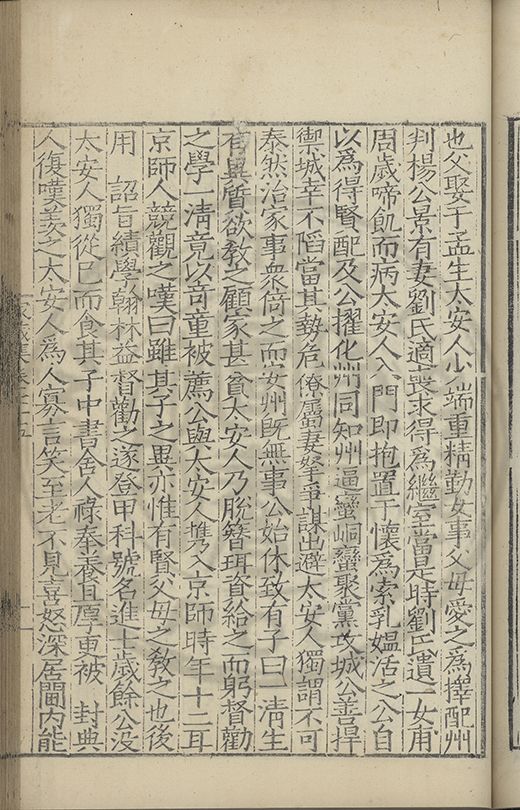 也父娶于孟生太安人少端重精勤女事父母愛之為擇配州
判楊公景有妻劉氏適喪求得為繼室當是時劉氏遺一女甫
周歲啼飢而病太安人入門即抱置于懷為索乳媼活之公自
以為得賢配及公擢化州同知州逼蠻峒蠻聚黨攻城公善捍
禦城幸不陷當其勢危僚屬妻孥爭謀出避太安人獨謂不可
泰然治家事衆倚之而安州既無事公始休致有子曰一清生
有異質欲教之顧家甚貧太安人乃脫簪珥資給之而躬督勸
之學一清竟以奇童被薦公與太安人攜入京師時年十二耳
京師人競觀之嘆曰雖其子之異亦惟有賢父母之教之也後
用 詔旨績學翰林益督勸之遂登甲科號名進士歲餘公没
太安人獨從已而食其子中書舍人祿奉養且厚重被 封典
人復嘆羨之太安人為人寡言笑至老不見喜怒深居閫内能